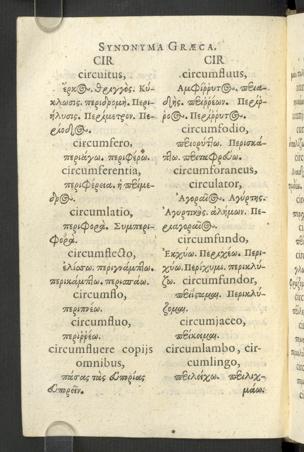 SYNONYMA GRÆCA.
CIR
circuitus,
ἕρκος. θριγγός. Κύ-
κλωσις. περιδρομή. Περι-
ήλυσις. Περίμετρον. Πε-
ρίοδος.
circumfero,
περιάγω. περιφέρω.
circumferentia,
περιφέρεια. ἡ περίμε-
τρος.
circumlatio,
περιφορά. Συμπερι-
φορά.
circumflecto,
ἑλίσσω. περιγνάμπτω.
περικάμπτω. περισπάω.
circumflo,
περιπνέω.
circumfluo,
περιῤῥέω.
circumfluere copijs
omnibus,
πάσας τὰς εὐπορίας
εὐπορεῖν.
CIR
circumfluus,
Ἀμφίῤῥυτος. περια-
περιῤῥέων. Περίῤ-
ῥοος. Περίῤῥυτος.
circumfodio,
περιορύττω. Περισκά-
πτω.
circumforaneus,
circulator,
Ἀγοραῖος. Ἀγύρτης.
Ἀγορτικός. ἀλήμων. Πε-
ριαγοραῖος.
circumfundo,
Ἐκχύω. Περιχέω. Περι-
χύω. Περίχυμι. περικλύ-
ζω. circumfundor,
περιΐσταμαι. Περικλύ-
ζομαι.
circumjaceo,
περίκειμαι.
circumlambo, cir-
cumlingo,
περιλείχω. περιλιχ-
μάω.